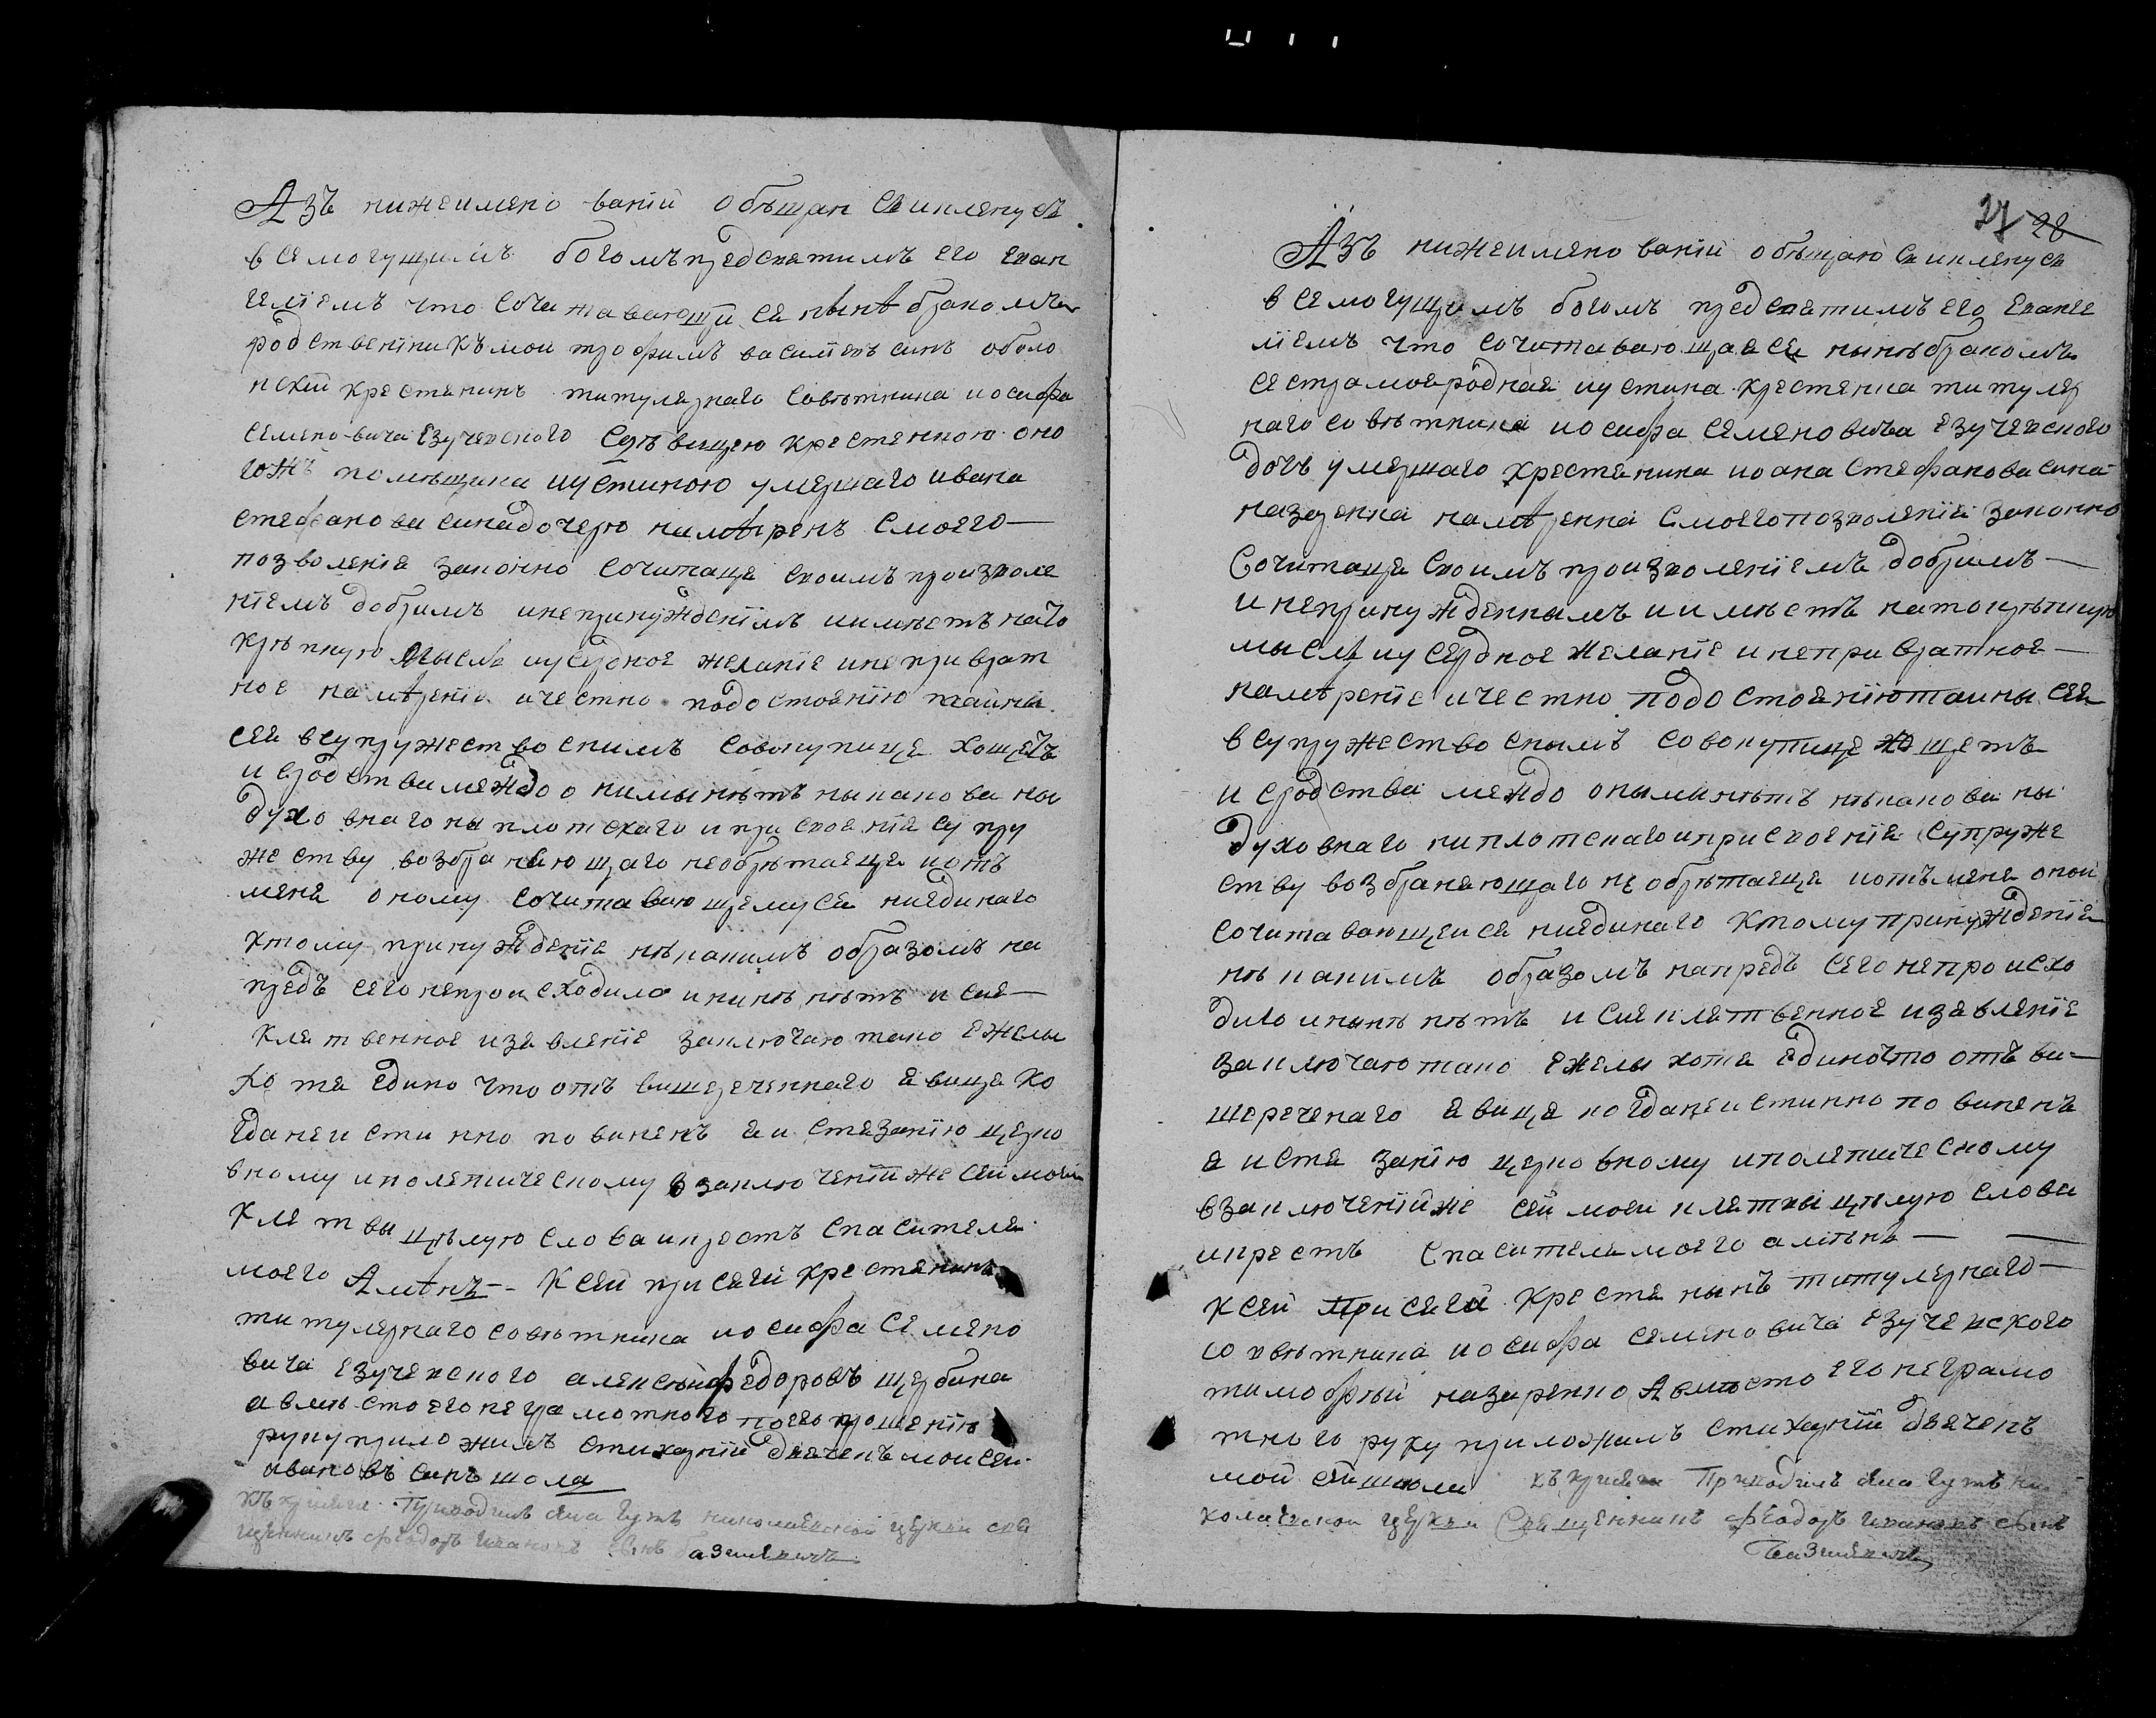 Азъ нижеимено ваній обѣщаю ся иклену ся
всемогущимъ богомъ предсвятимъ его Еван
геліемъ что сочитавающій ся нынѣ бракомъ
родственникъ мой трофимъ василіевъ синъ оболо
нскій крестянинъ титулярнаго совѣтника иосифа
семеновича Езучевского Содѣвицею крестянкою оно
гожъ помѣщика иустиною умершаго ивана
стефанова сина дочерю намѣренъ Смоего
позволенія законно сочитаця своимъ произволе
ніемъ добримъ инепринужденімъ иимѣетъ нато
крѣпкую мысль иусердное желаніе инепривратн
ное намѣреніе ичестно подостоянію тайны
сея всупружество снимъ совокупица хощетъ
и сродства междо онимы нѣтъ ныкакова ны
духовнаго ны плотскаго и присвоенія супру
жеству возбраняющаго необрѣтаеця иотъ
мене оному сочитавающемуся ниединаго
ктому принужденія нѣкакимъ образомъ на
предъ сего непроисходило инынѣ нѣтъ и сіе
клятвенное изявленіе заключаю тако ежелы
хотя едино что отъ вишереченнаго явиця ко
гда неистинно повиненъ я и стязанію церко
вному иполѣтическому взаключеніи же сей моей
клятвы цѣлую слова икрестъ Спасителя
моего Амѣнъ — Ксей присяги крестянинъ
титулярнаго совѣтника иосифа Семено
вича Езучевского алексѣй федоровъ щербина
авмѣсто его неграмотного поего прошенію
руку приложилъ стихарній дяченъ моисей
ивановъ синъ шола
къ присяги Приводилъ яна гутъ николаевской церкви свя
щенникъ феодоръ Ивановъ синъ базилевичъ
27 28
Азъ нижеимено ваній обѣщаю ся иклену ся
всемогущимъ богомъ предсвятимъ его Еванге
ліемъ что сочитавающаяся нынѣ бракомъ
сестра моя родная иустина крестянка титуляр
наго совѣтника иосифа Семеновича Езучевского
дочъ умершаго крестянина иоана Стефанова сина
назаренка намѣренна Смоего позволенія законно
Сочитаця своимъ произволеніемъ добримъ
и непринужденнымъ иимѣетъ нато крѣпкую
мысль иусердное желаніе инепривратное
намѣреніе ичестно подостоянію таины сея
всупружество снымъ совокупице хощетъ
и сродства междо онымы нѣтъ нѣкакова ны
духовнаго ниплотскаго иприсвоенія супруже
ству возбраняющаго не обрѣтаеця иотъ мене оной
сочитавающейся ниединаго ктому принужденія
нѣкакимъ образомъ напредъ сего непроисхо
дило инынѣ нѣтъ и сіе клятвенное изявленіе
заключаю тако ежелы хотя едино что отъ ви
шереченаго явиця когда неистинно повиненъ
я истя занію церковному иполѣтическому
взаключеніи же сей моей клятвы цѣлую слова
икрестъ Спасителя моего амѣнъ
ксей присяги крестянынъ титулярнаго
совѣтника иосифа семеновича Езучевского
тимофѣй назаренко Авмѣсто его неграмо
тного руку приложилъ стихарній дяченъ
мойсей шола къ присяги Приводилъ яна гутъ ни
колаевской церкви Священникъ феодоръ Ивановъ синъ
Базилевичъ